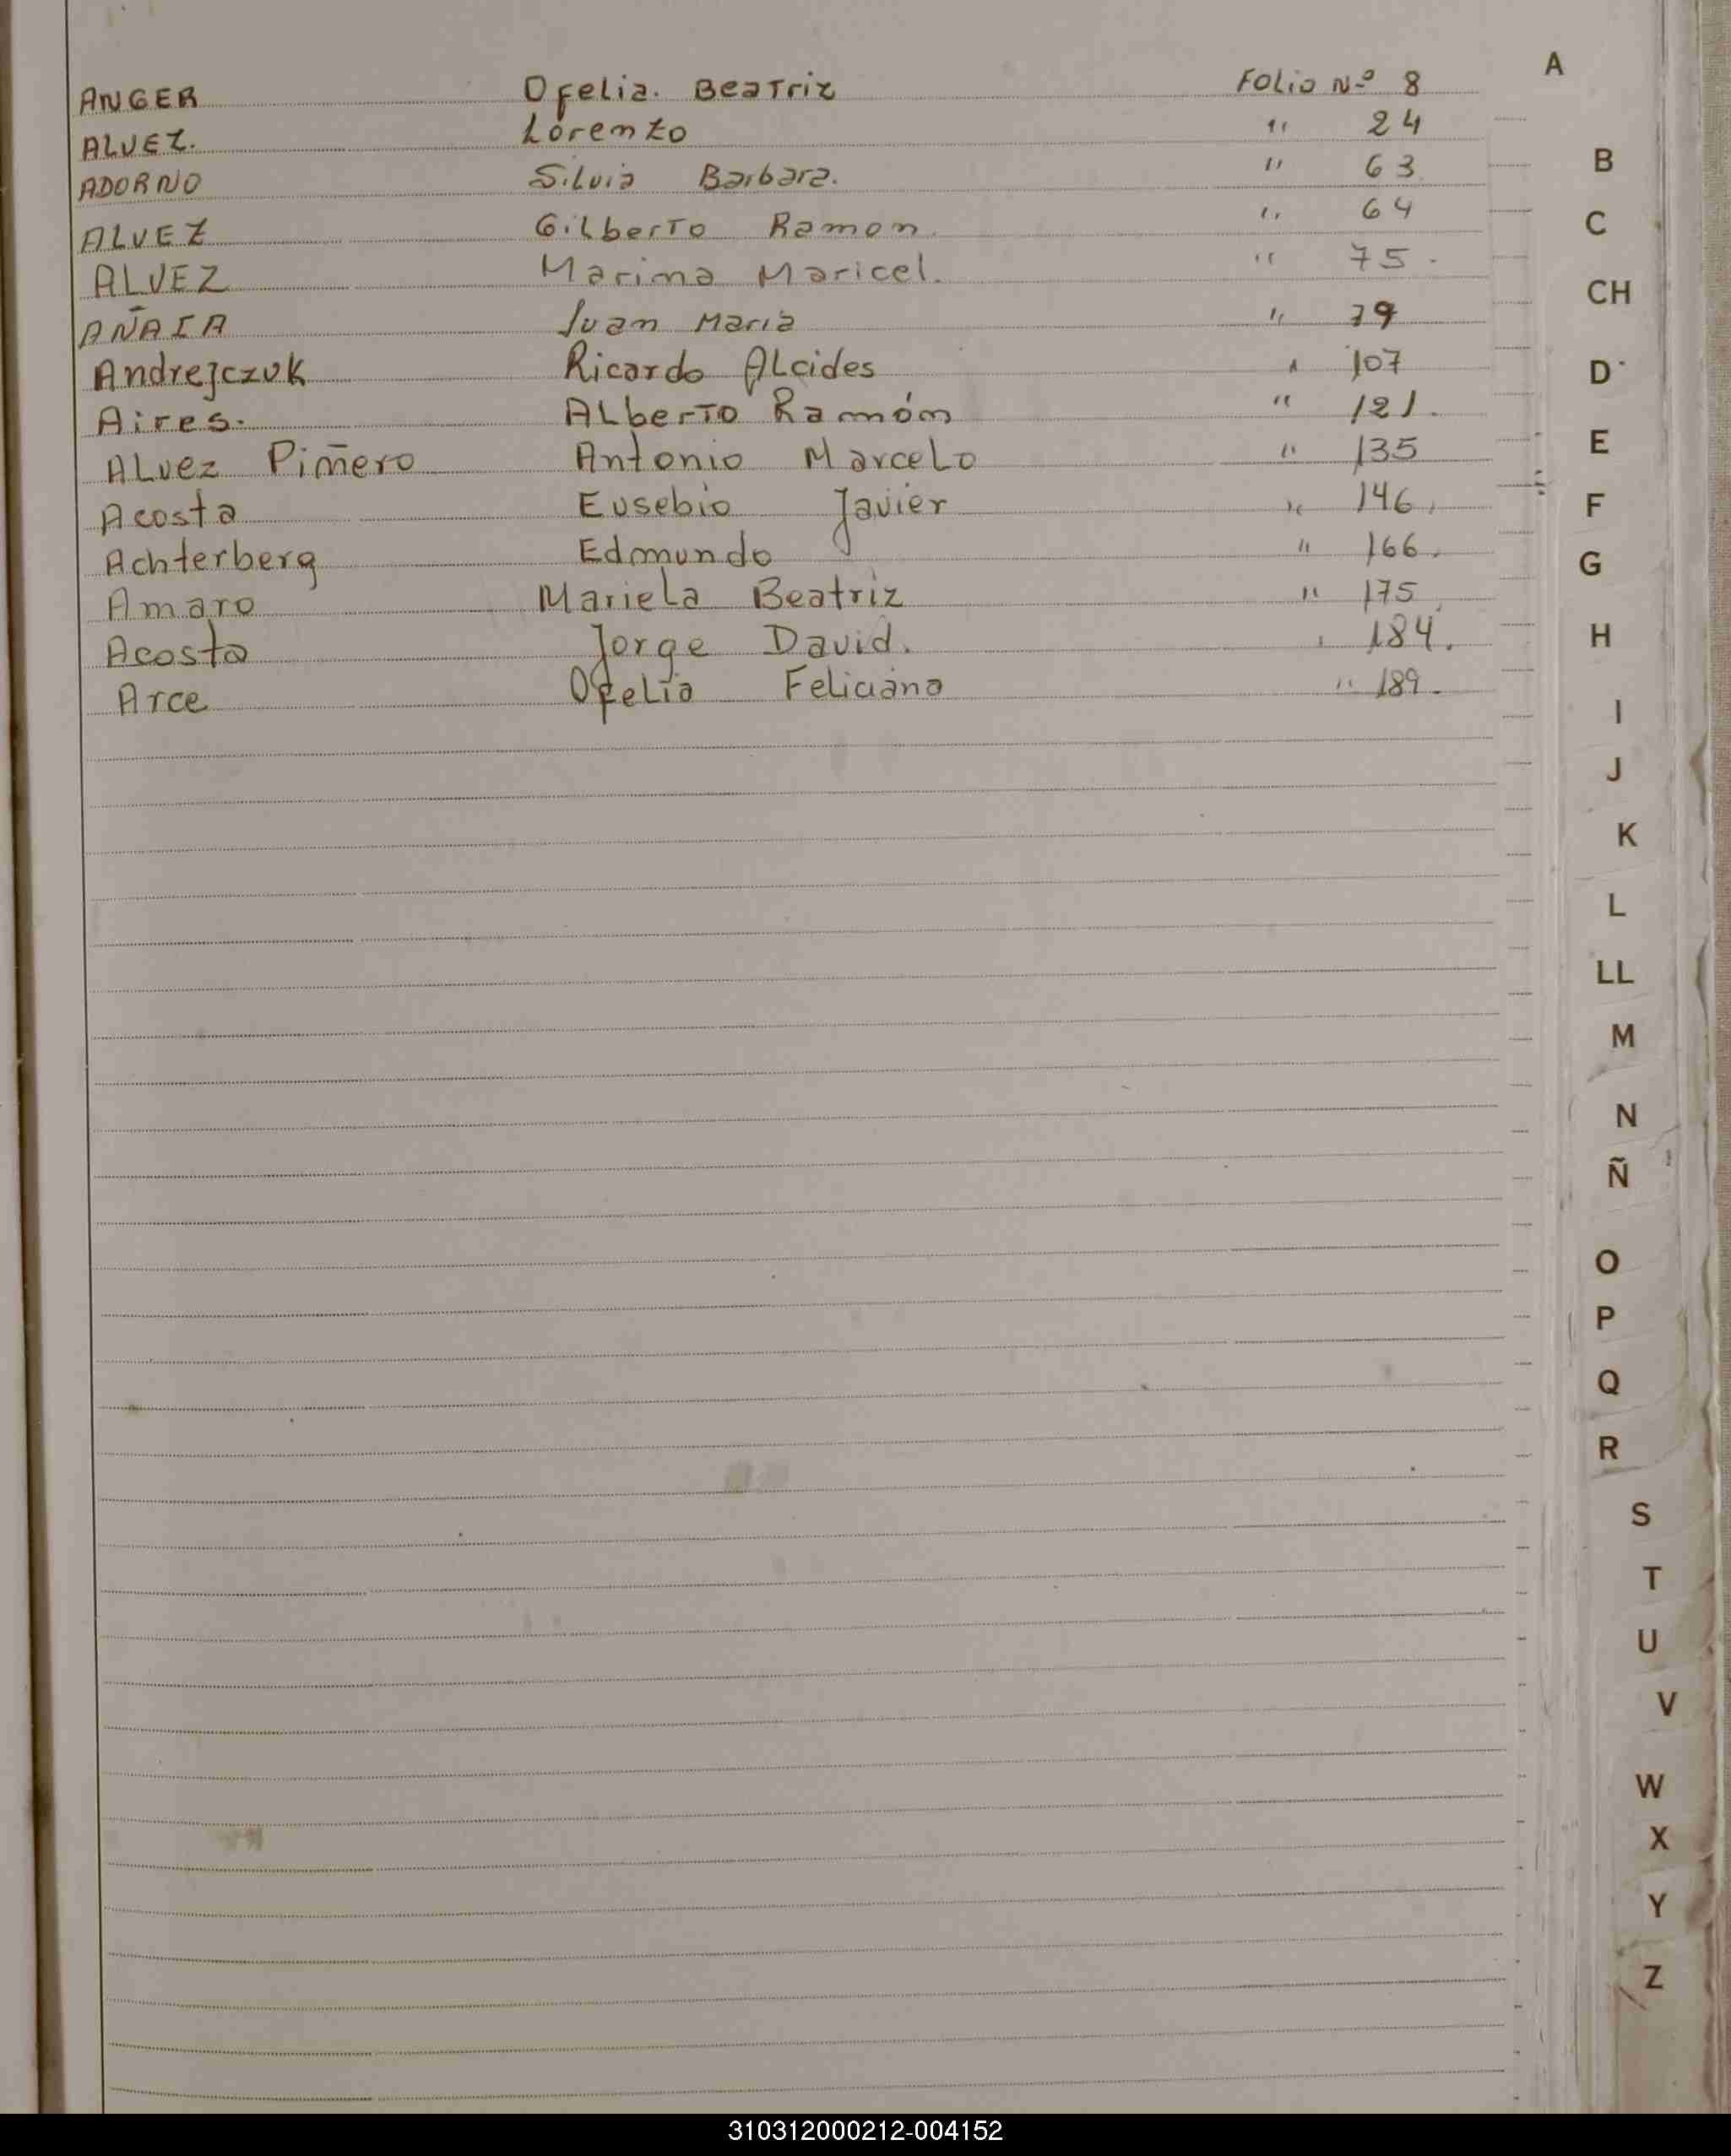 ANGER Ofelia. Beatriz Folio Nº 8
ALVEZ. Lorenzo " 24
ADORNO Silvia Barbara. " 63
ALVEZ Gilberto Ramon. " 64
ALVEZ Marina Maricel. " 75.
AÑAIA Juan Maria " 79
Andrejczuk Ricardo Alcides " 107
Aires. Alberto Ramón " 121.
Alvez Piñero Antonio Marcelo " 135
Acosta Eusebio Javier " 146.
Achterberg Edmundo " 166.
Amaro Mariela Beatriz " 175
Acosta Jorge David. " 184.
Arce Ofelia Feliciana " 189.
A
B
C
CH
D
E
F
G
H
I
J
K
L
LL
M
N
Ñ
O
P
Q
R
S
T
U
V
W
X
Y
Z
310312000212-004152